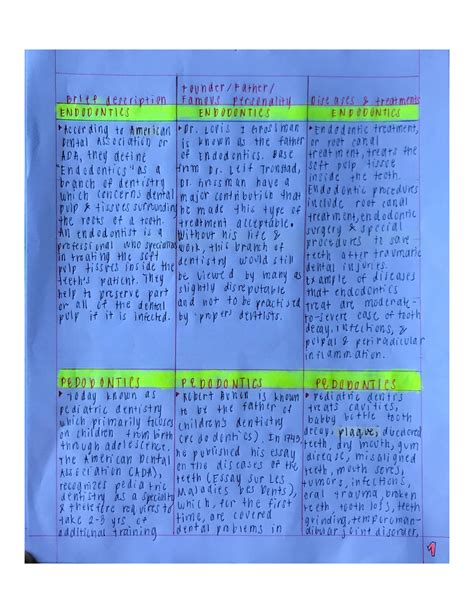 Brief description
Founder/Father/
Famous personality
Diseases & treatments
ENDODONTICS
• According to American
Dental Association or
ADA, they define
"Endodontics" as a
branch of dentistry
which concerns dental
pulp & tissues surrounding
the roots of a tooth.
An endodontist is a
professional who specializes
in treating the soft
pulp tissues inside the
teeth's patient. They
help to preserve part
or all of the dental
pulp if it is infected.
ENDODONTICS
• Dr. Louis I Grossman
is known as the father
of Endodontics. Base
from Dr. Leif Tronstad,
Dr. Grossman have a
major contribution that
he made this type of
treatment acceptable.
Without his life &
work, this branch of
dentistry would still
be viewed by many as
slightly disreputable
and not to be practised
by "proper" dentists.
ENDODONTICS
• Endodontic treatment,
or root canal
treatment, treats the
soft pulp tissue
inside the teeth.
Endodontic procedures
include root canal
treatment, endodontic
surgery & special
procedures to save
teeth after traumatic
dental injuries.
Example of diseases
that endodontics
treat are moderate-
to-severe case of tooth
decay, infections, &
pulpal & periradicular
inflammation.
PEDODONTICS
• Today known as
pediatric dentistry
which primarily focuses
on children from birth
through adolescence.
The American Dental
Association (ADA),
recognizes pediatric
dentistry as a specialty
& therefore requires to
take 2-3 yrs of
additional training
PEDODONTICS
• Robert Bunon is known
to be the father of
children's dentistry
(pedodontics). In 1743,
he published his essay
on the diseases of the
teeth (Essay sur Les
Maladies des Dents),
which, for the first
time, are covered
dental problems in
PEDODONTICS
• Pediatric dentics
treats cavities,
baby bottle tooth
decay, plaque, discolored
teeth, dry mouth, gum
disease, misaligned
teeth, mouth sores,
tumors, infections,
oral trauma, broken
teeth, tooth loss, teeth
grinding, temporoman-
dibular joint disorder,
1